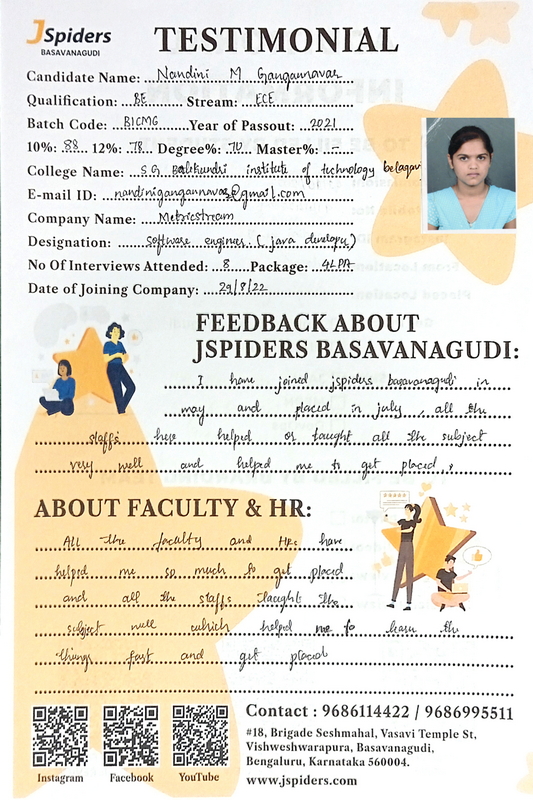 JSpiders
BASAVANAGUDI
TESTIMONIAL
Candidate Name: Nandini M Gangannavar
Qualification: BE Stream: ECE
Batch Code: B1CMG Year of Passout: 2021
10%: 88 12%: 78 Degree%: 70 Master%:
College Name: S.G. Balekundri institute of technology belagavi
E-mail ID: nandinigangannavar@gmail.com
Company Name: Metricstream
Designation: software engineer (java developer)
No Of Interviews Attended: 8 Package: 4LPA
Date of Joining Company: 29/8/22
FEEDBACK ABOUT
JSPIDERS BASAVANAGUDI:
I have joined jspiders basavanagudi in
may and placed in july, all the
staffs here helped or taught all the subject
very well and helped me to get placed.
ABOUT FACULTY & HR:
All the faculty and HRs have
helped me so much to get placed
and all the staffs taught the
subject well which helped me to learn the
things fast and get placed
Contact : 9686114422 / 9686995511
#18, Brigade Seshmahal, Vasavi Temple St,
Vishweshwarapura, Basavanagudi,
Bengaluru, Karnataka 560004.
Instagram Facebook YouTube
www.jspiders.com